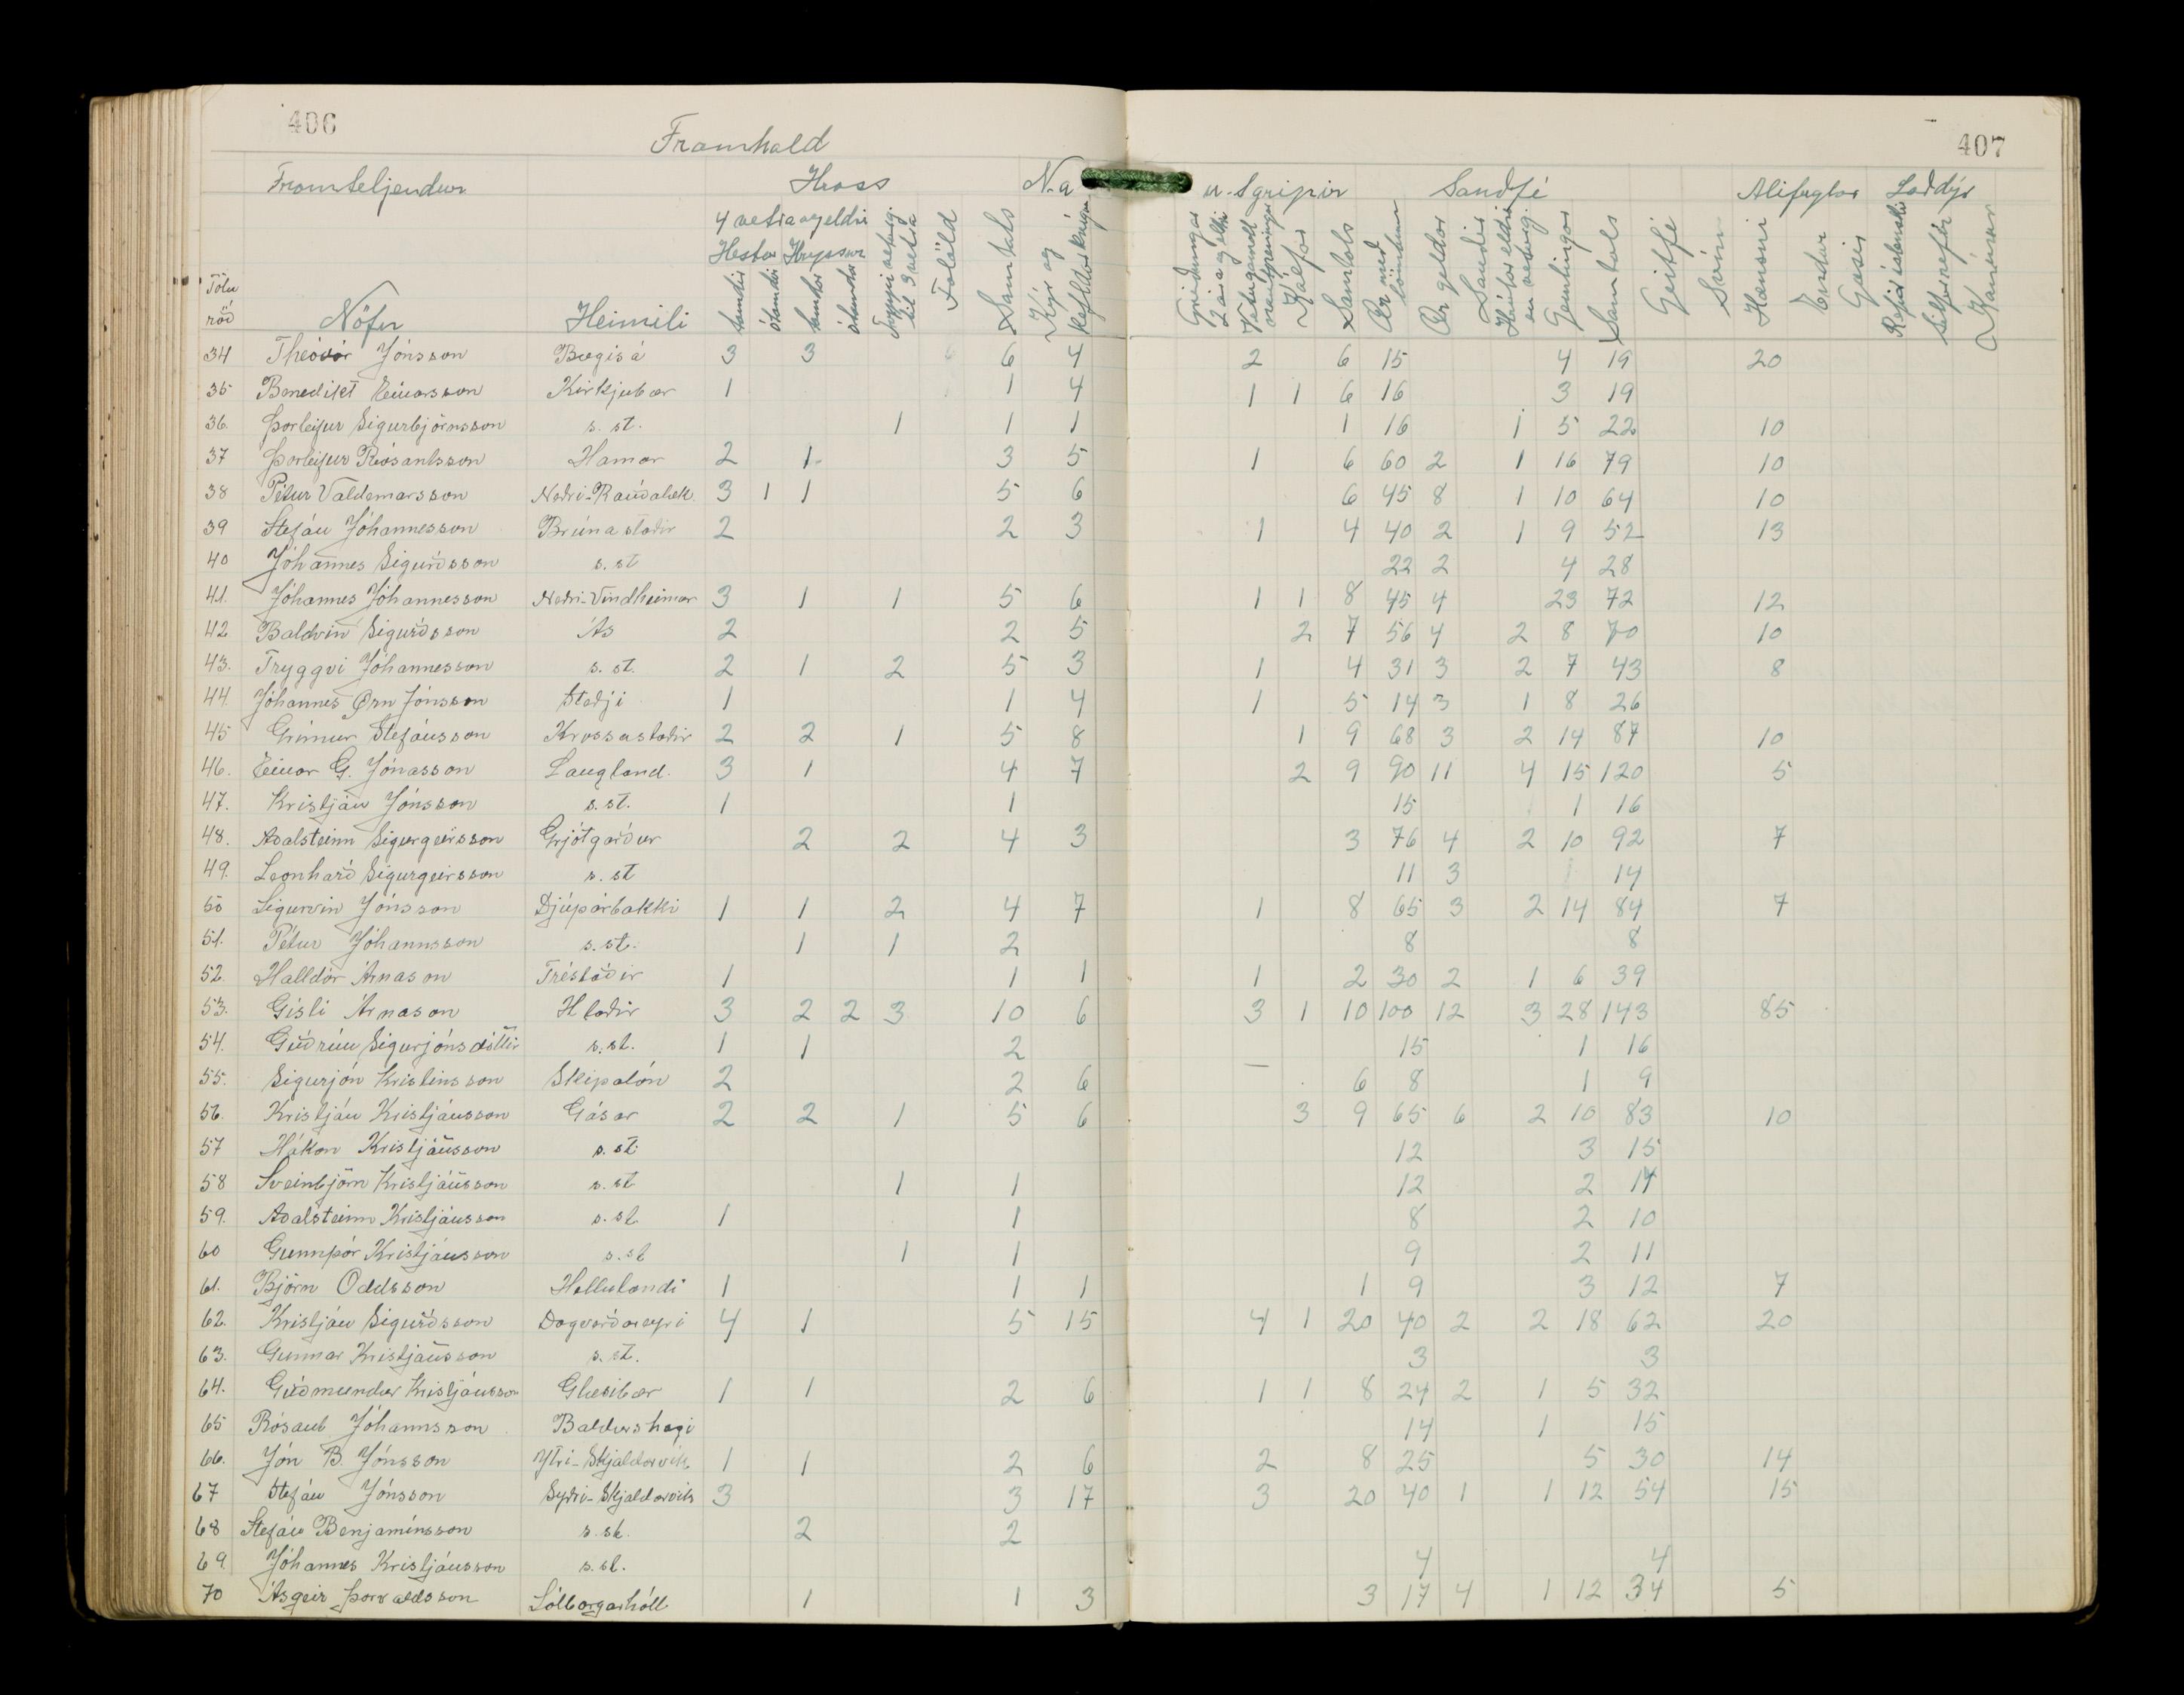 406
407
Framhald
Framteljendur Hross Na u-tgripir Sauðfé Alifuglar Loðdýr
4 vetra og eldri
Hestar Hryssur
Tölu röð Nöfn Heimili tamdir ótamdir tamdar ótamdar Tryppi veturg. til 3 vetra Folöld Samtals Kýr og kefldar kvígur Griðungar 2 ára og eldri Veturgamalt Kálfar Samtals Ær með lömbum Ær geldar Sauðir Hrútar eldri en veturg. Gemlingar Samtals Geitfé Svín Hænsni Endur Gæsir Refir íslenskir Silfurrefir Kanínur
34 Theódór Jónsson Bægisá 3 3 6 4 2 6 15 4 19 20
35 Benedikt Einarsson Kirkjubær 1 1 4 1 1 6 16 3 19
36. Þorleifur Sigurbjörnsson s. st. 1 1 1 1 16 1 5 22 10
37 Þorleifur Rósantsson Hamar 2 1 3 5 1 6 60 2 1 16 79 10
38 Pétur Valdemarsson Neðri-Rauðalæk 3 1 1 5 6 6 45 8 1 10 64 10
39 Stefán Jóhannesson Brúnastaðir 2 2 3 1 4 40 2 1 9 52 13
40 Jóhannes Sigurðsson s. st 22 2 4 28
41. Jóhannes Jóhannesson Neðri-Vindheimar 3 1 1 5 6 1 1 8 45 4 23 72 12
42 Baldvin Sigurðsson Ás 2 2 5 2 7 56 4 2 8 70 10
43. Tryggvi Jóhannesson s. st. 2 1 2 5 3 1 4 31 3 2 7 43 8
44 Jóhannes Örn Jónsson Steðji 1 1 4 1 5 14 3 1 8 26
45 Grímur Stefánsson Krossastaðir 2 2 1 5 8 1 9 68 3 2 14 87 10
46. Einar G. Jónasson Laugland. 3 1 4 7 2 9 90 11 4 15 120 5
47. Kristján Jónsson s. st. 1 1 15 1 16
48. Aðalsteinn Sigurgeirsson Grjótgarður 2 2 4 3 3 76 4 2 10 92 7
49. Leonharð Sigurgeirsson s. st 11 3 14
50 Sigurvin Jónsson Djúpárbakki 1 1 2 4 7 1 8 65 3 2 14 84 7
51. Pétur Jóhannsson s. st. 1 1 2 8 8
52. Halldór Árnason Tréstaðir 1 1 1 1 2 30 2 1 6 39
53. Gísli Árnason Hlaðir 3 2 2 3 10 6 3 1 10 100 12 3 28 143 85
54. Guðrún Sigurjónsdóttir s. st. 1 1 2 15 1 16
55. Sigurjón Kristinsson Skipalón 2 2 6 — 6 8 1 9
56. Kristján Kristjánsson Gásar 2 2 1 5 6 3 9 65 6 2 10 83 10
57 Hákon Kristjánsson s. st. 12 3 15
58 Sveinbjörn Kristjánsson s. st 1 1 12 2 14
59. Aðalsteinn Kristjánsson s. st. 1 1 8 2 10
60 Gunnþór Kristjánsson s. st 1 1 9 2 11
61. Björn Oddsson Hellulandi 1 1 1 1 9 3 12 7
62. Kristján Sigurðsson Dagverðareyri 4 1 5 15 4 1 20 40 2 2 18 62 20
63. Gunnar Kristjánsson s. st. 3 3
64. Guðmundur Kristjánsson Glæsibær 1 1 2 6 1 1 8 24 2 1 5 32
65 Rósant Jóhannsson Baldurshagi 14 1 15
66. Jón B. Jónsson Ytri-Skjaldarvík 1 1 2 6 2 8 25 5 30 14
67 Stefán Jónsson Syðri-Skjaldarvík 3 3 17 3 20 40 1 1 12 54 15
68 Stefán Benjamínsson s. st. 2 2
69. Jóhannes Kristjánsson s. st. 4 4
70 Ásgeir Þorvaldsson Sólborgarhóll 1 1 3 3 17 4 1 12 34 5